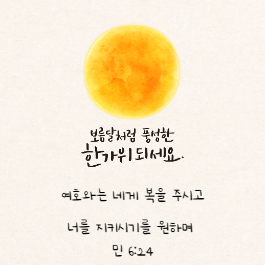 보름달처럼 풍성한
한가위 되세요.
여호와는 네게 복을 주시고
너를 지키시기를 원하며
민 6:24